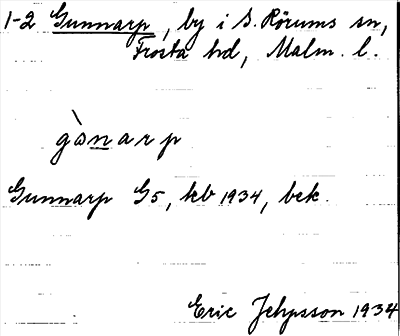 1-2 Gunnarp, by i S. Rörums sn,
Frosta hd, Malm. l.
gànarp
Gunnarp G5, kb 1934, bek.
Eric Jehpsson 1934